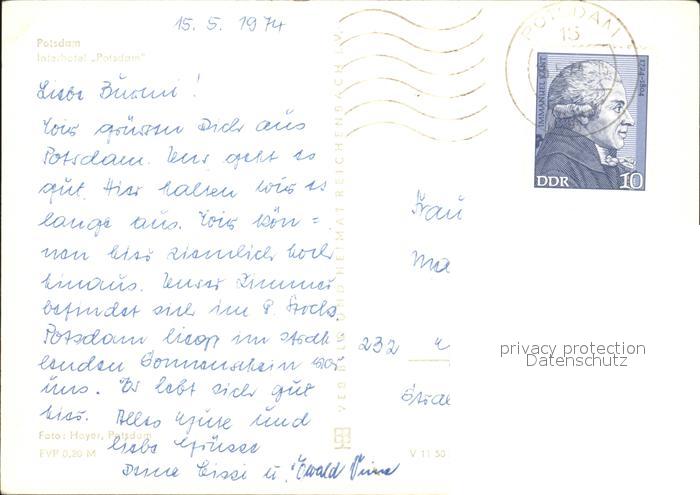 15. 5. 1974
Potsdam
Interhotel „Potsdam"
Liebe Burmi!
Wir grüssen Dich aus
Potsdam. Uns geht es
gut. Hier halten wir es
lange aus. Wir kön=
nen hier ziemlich hoch
hinaus. Unser Zimmer
befindet sich im 8. Stock.
Potsdam liegt im strah
lenden Sonnenschein vor
uns. Es lebt sich gut
hier. Alles Gute und
liebe Grüsse
Deine Cissi u. Ewald
Foto: Hoyer, Potsdam
EVP 0,20 M
VEB BILD UND HEIMAT REICHENBACH I. V.
V 11 50
POTSDAM
15
IMMANUEL KANT
1724-1804
DDR 10
Frau
232
privacy protection
Datenschutz